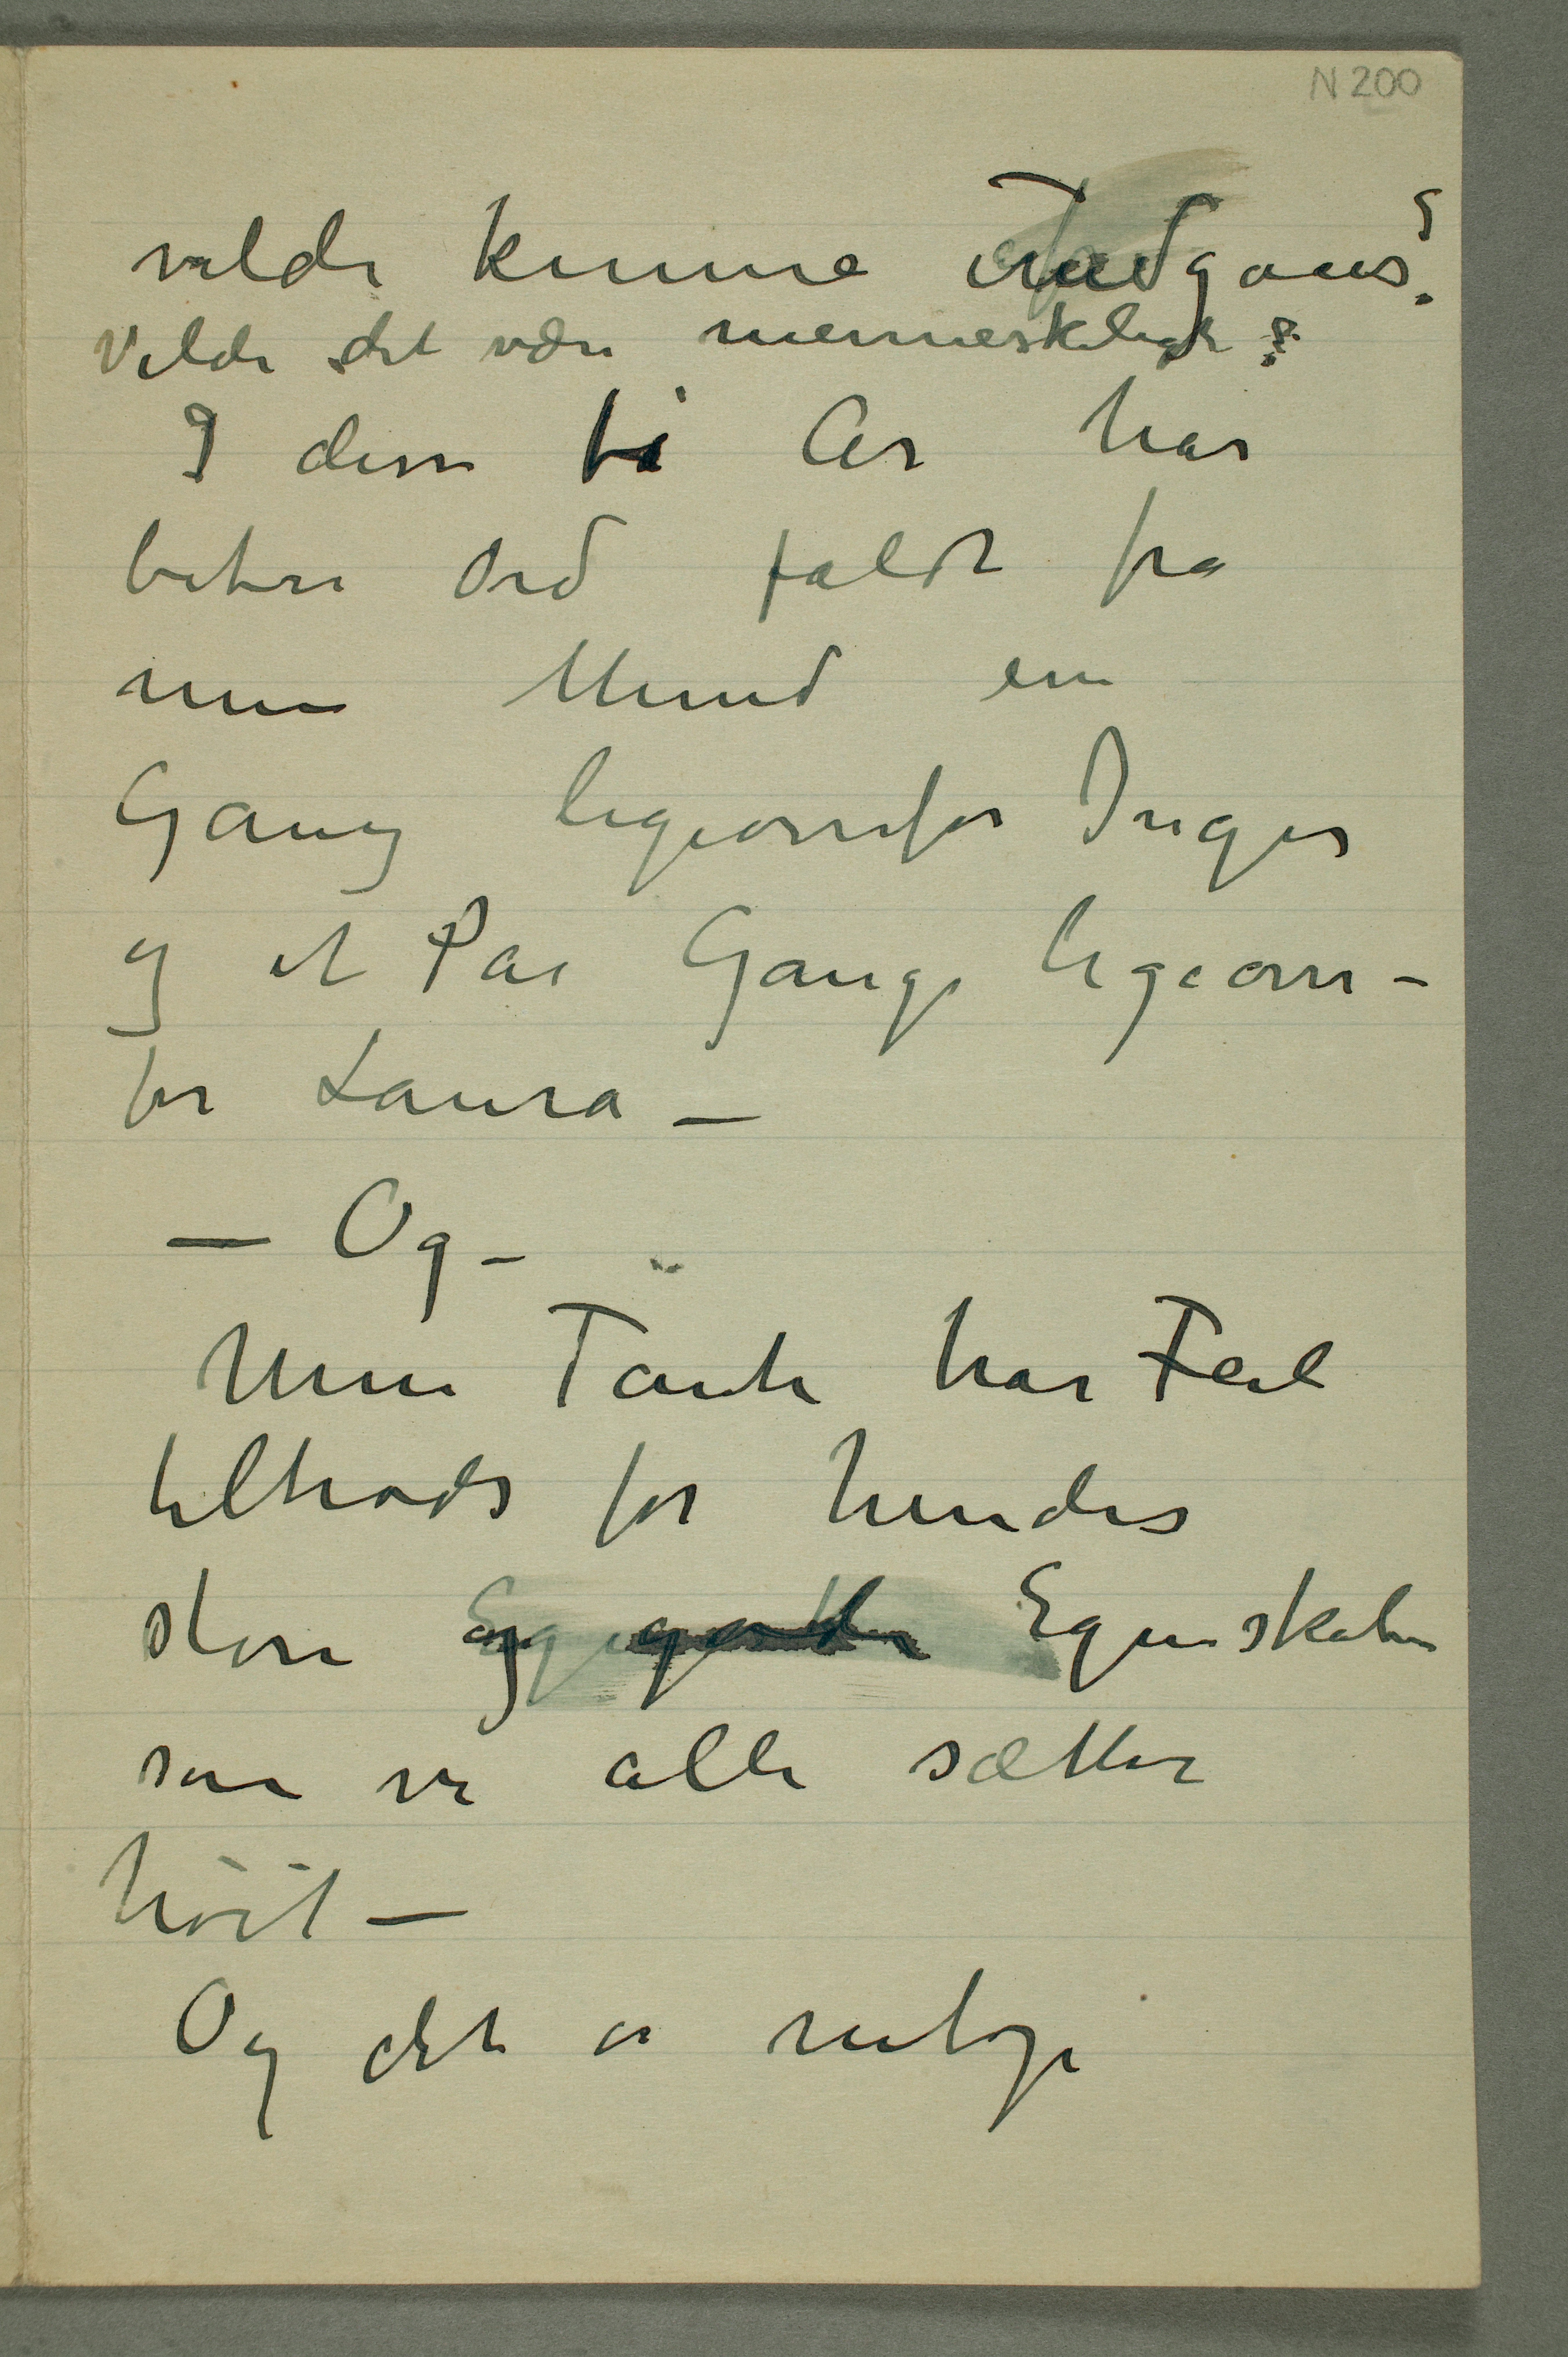 N 200
vilde kunne undgaaes?
Vilde det være menneskeligt?
I disse ti År har
bitre Ord faldt fra
min Mund en
Gang ligeoverfor Inger
og et Par Gange ligeover-
for Laura –
– Og –
Min Tante har Feil
tiltrods for hendes
store Egenskaber
som vi alle sætter
höit –
Og det er rulige